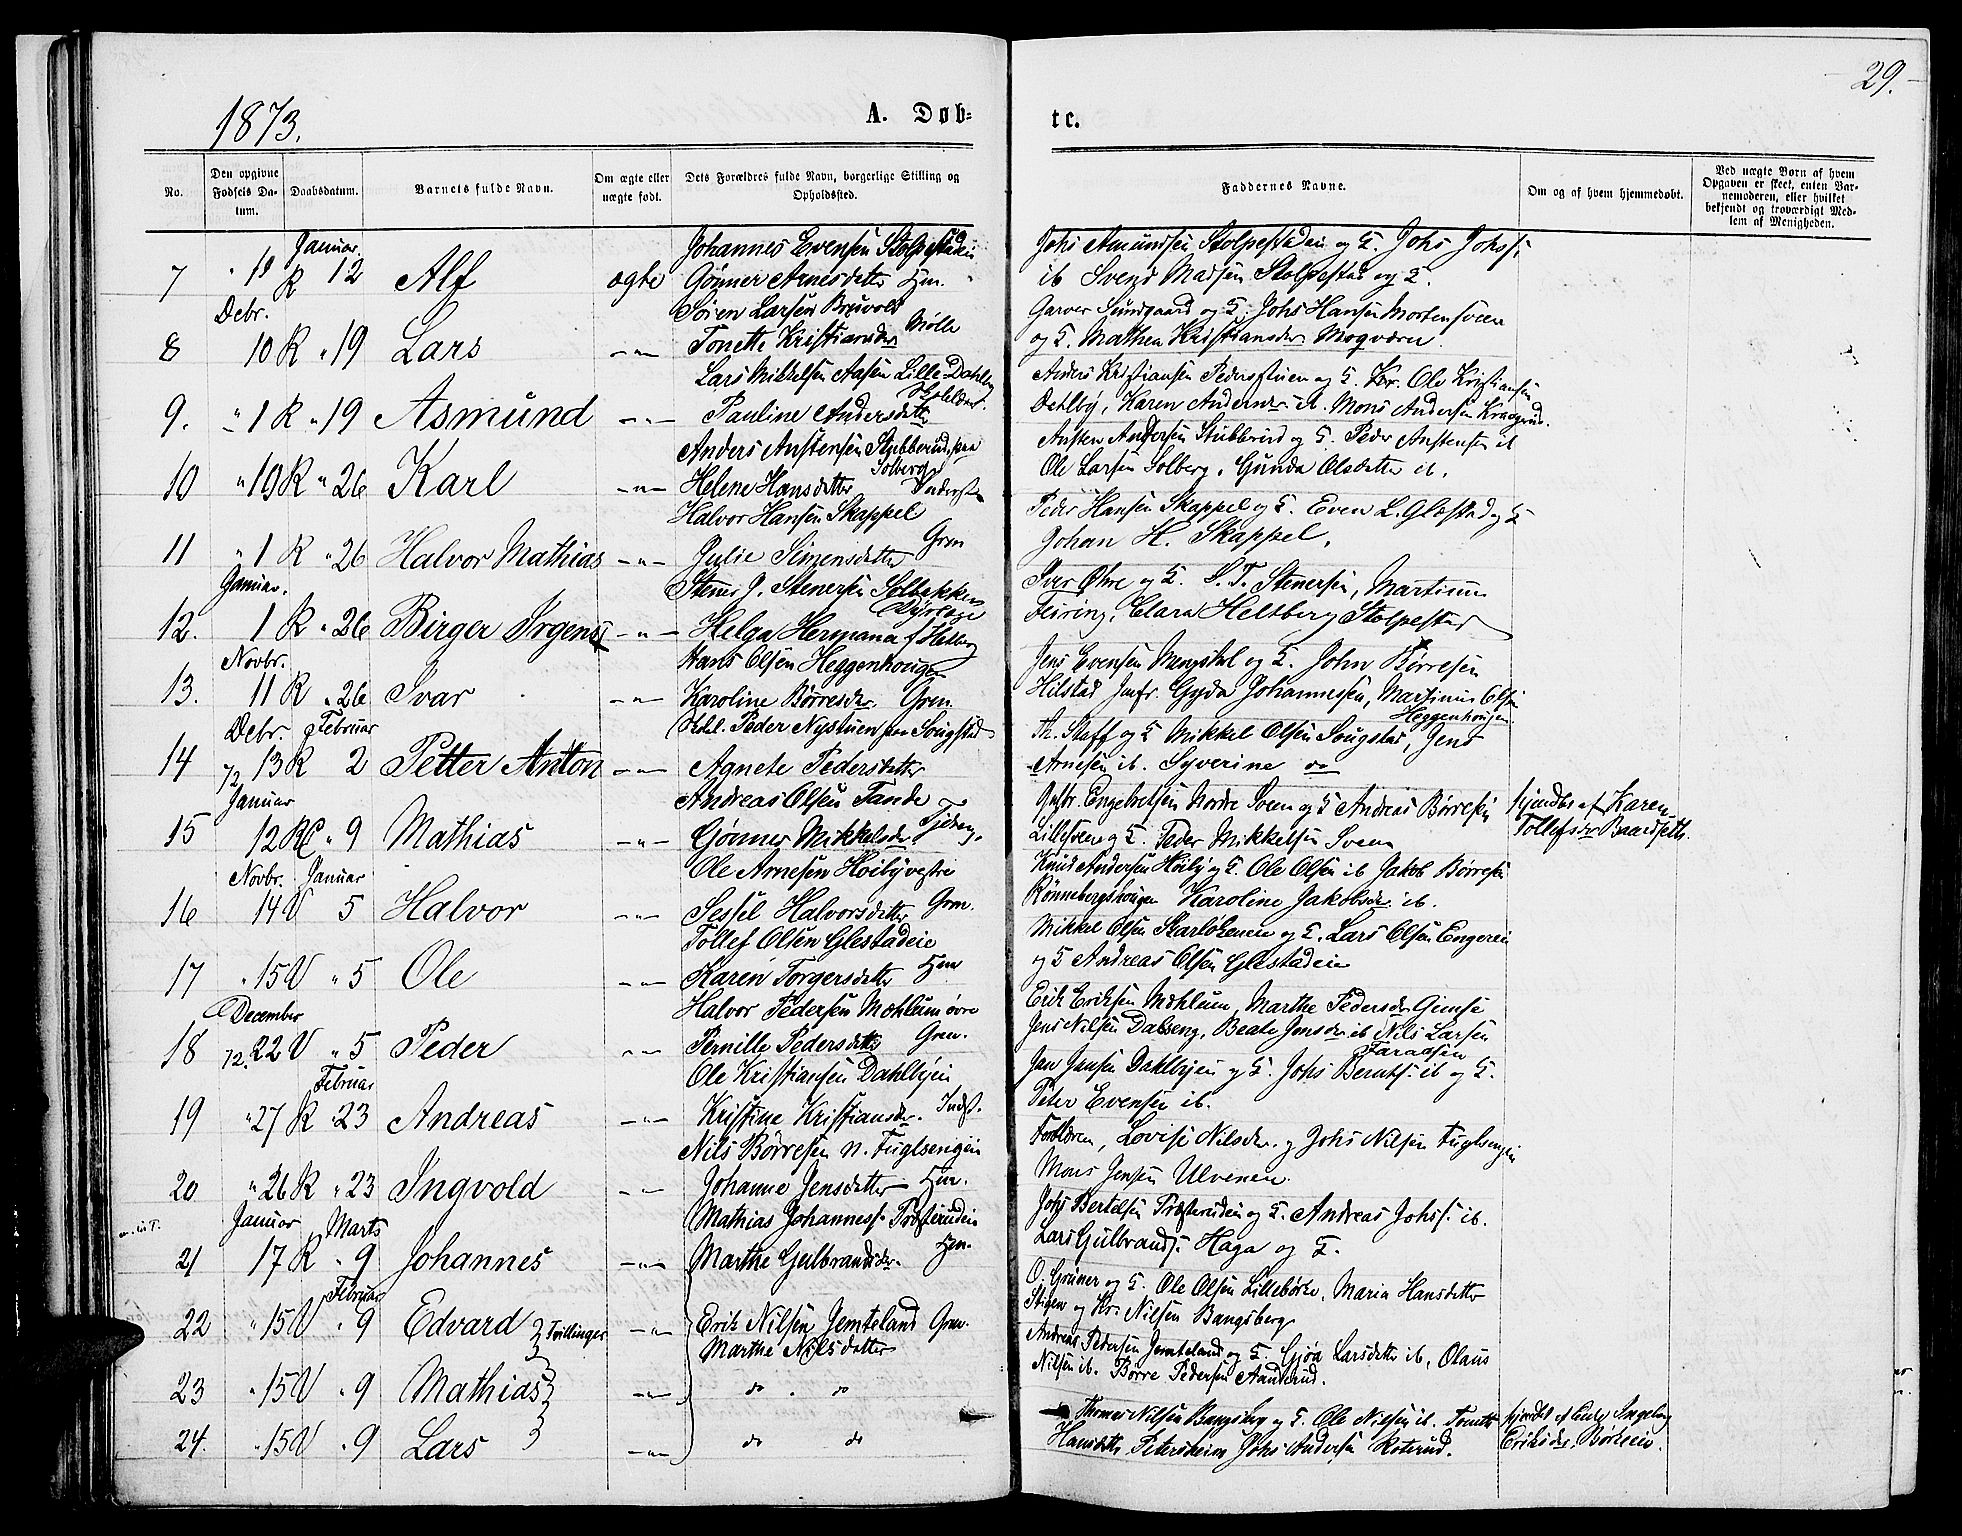 29.
1873.
A. Døb-
te.
No.
Den opgivne Fødsels Da-tum.
Daabsdatum.
Barnets fulde Navn.
Om ægte eller uægte født.
Dets Forældres fulde Navn, borgerlige Stilling og Opholdssted.
Faddernes Navne.
Om og af hvem hjemmedøbt.
Ved uægte Børn af hvem Opgaven er skeet, enten Bar-nemoderen, eller hvilket bekjendt og troværdigt Med-lem af Menigheden.
Januar
7 K 12 Alf ægte Johannes Evensen Stolpestadei
Gønner Arnesdatter Hm.
Johs Amundsen Stolpestadei og H. Johs Johs.
ib Svend Madsen Stolpestad og
Debr.
8 10 K " 19 Lars -"- Søren Larsen Bruvold
Tonette Kristiansdr Mølle
Garver Sundgaard og Johs Hansen Mortensveen
og Mathea Kristiansdr
9. " 1 K " 19 Asmund -"- Lars Mikkelsen Aasen Lille Dahlby
Pauline Andersdatter
Anders Kristiansen Pederstuen og Ole Kristiansen
Dehlby, Karen Mons Andersen
10 " 19 K " 26 Karl -"- Anders Austensen Stubberud paa Solberg
Helene Hansdatter
Austen Andersen Stubberud og Peder Austensen ib
Ole Larsen Solberg, Gunda Olsdatter ib.
11 " 1 K " 26 Halvor Mathias -"- Halvor Hansen Skappel
Julie Simensdatter Grm
Peder Hansen Skappel og Even L. Glestad og
Johan H. Skappel.
Januar.
12. 1 K " 26 Birger Irgens -"- Stener J. Stenersen Solbakken
Helga Hermana f. Heltberg
Iver Øhre og S. T. Stenersen, Martinus
Feiring, Clara Heltberg Stolpestad
Novbr.
13. 11 K " 26 Ivar -"- Hans Olsen Heggenhougen
Karoline Børresdr Grm.
Jens Evensen Mengshol og John Børresen
Hilstad Jmfr. Gyda Johannessen, Martinus Olsen
Heggenhougen
Debr. Februar
14 72 13 K 2 Petter Anton -"- Peder Nystuen paa Sougstad
Agnete Pedersdatter
Th. Staff og Mikkel Olsen Sougstad, Jens
Arnesen ib. Syverine do
Januar
15 12 K " 9 Mathias -"- Andreas Olsen Tande
Gønner Mikkelsdr
Engebretsen Nordre Sveen og Andreas Børresen
Lillesveen og Peder Mikkelsen Sveen
hjmdbt af Karen
Tollefsdr Baardseth.
Novbr. Januar
16 14 V 5 Halvor -"- Ole Arnesen Hoiby vestre
Sessel Halvorsdatter Grm.
Knud Andersen Hoiby og Ole Olsen ib Jakob Børresen
Rønnebergshougen Karoline Jakobsdr ib.
17 " 15 V " 5 Ole -"- Tollef Olsen Glestadeie
Karen Torgersdatter Hm
Mikkel Olsen og Lars Olsen Engereie
og Andreas Olsen Glestadeie
December
18 72. 22 V " 5 Peder -"- Halvor Pedersen Mæhlum øvre
Pernille Pedersdatter Grm.
Erik Eriksen Mæhlum, Marthe Pedersdr Gimse
Jens Nilsen Dalseng, Beate Jensdr ib Nils Larsen
Februar
19 " 27 K " 23 Andreas -"- Ole Kristiansen Dahlbyeie
Kristine Kristiansdr. Indst.
Jan Jansen Dahlbyeie og Johs Bernts. ib og
Peter Evensen ib.
20 " 26 K " 23 Ingvold -"- Nils Børresen n. Fuglsengeie
Johanne Jensdatter Hm.
Forældrene, Lovise Nilsdr. og Johs Nilsen Fuglsengeie
Mons Jensen Ulvenen.
Januar Marts
21 17 K " 9 Johannes -"- Mathias Johanness. Præsterudeie
Marthe Gulbrandsdr. Hm.
Johs Bertelsen Præsterudeie og Andreas Johs. ib.
Lars Gulbrands. Haga og
Februar
22 " 15 V " 9 Edvard Tvillinger -"- Erik Nilsen Jemteland Grm.
Marthe Nilsdatter
O. Grüner og Ole Olsen Lillebørke, Maria Hansdatter
Stigen og Kr. Nilsen Bangsberg
23 " 15 V " 9 Mathias -"- do " do
Andreas Pedersen Jemteland og Gjøa Larsdatter ib, Olaus
Nilsen ib. Børre Pedersen Aanderud.
24. " 15 V " 9 Lars -"- do do
Thomas Nilsen Bangsberg og Ole Nilsen ib. Tonette
Hansdatter Petersheim Johs Andersen Roterud.
hjmdbt af Ingeborg
Eriksdr, Børkeeie.